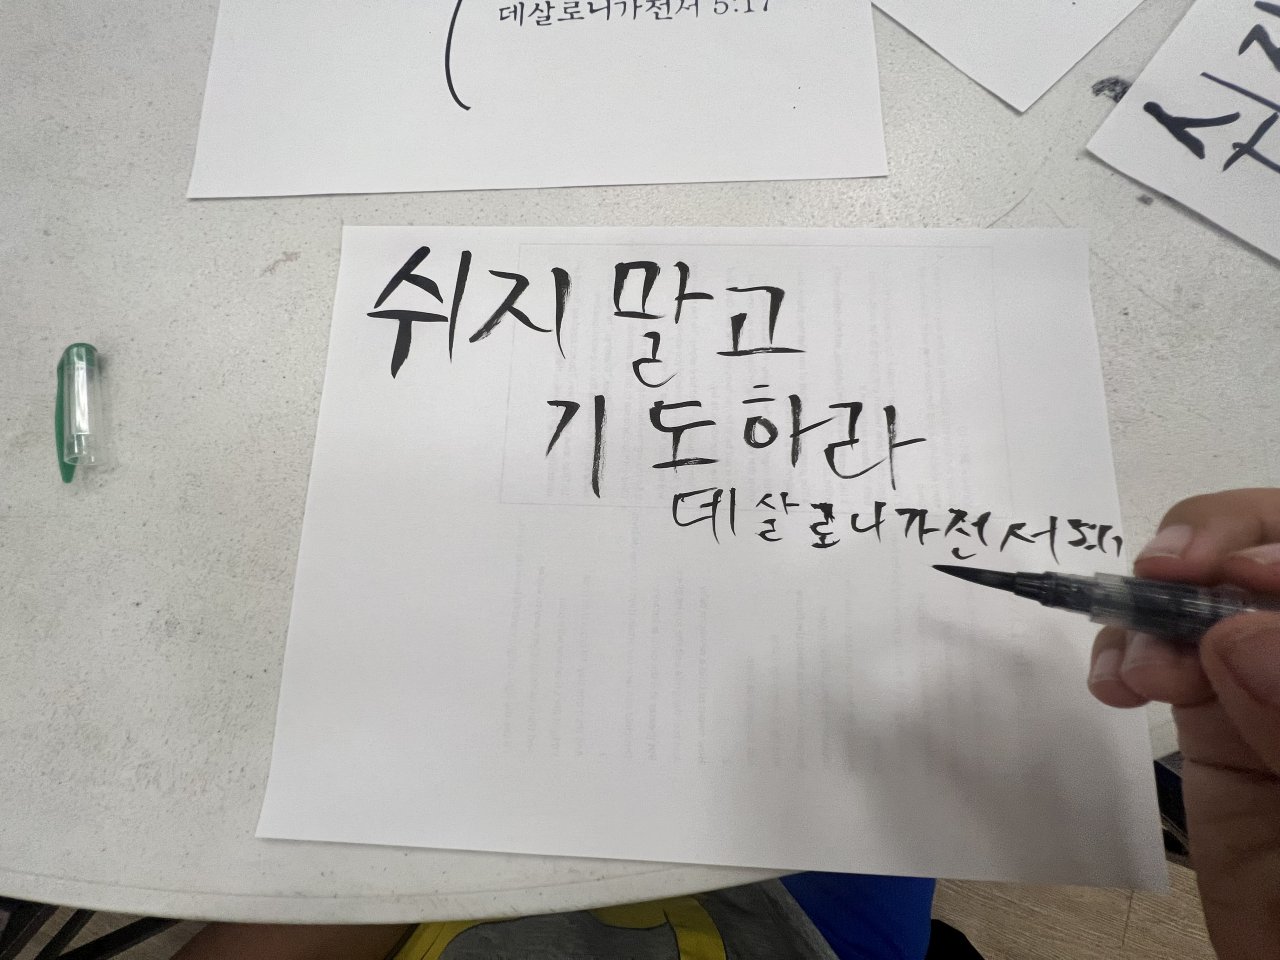 데살로니가전서 5:17
쉬지 말고
기도하라
데살로니가전서 5:17